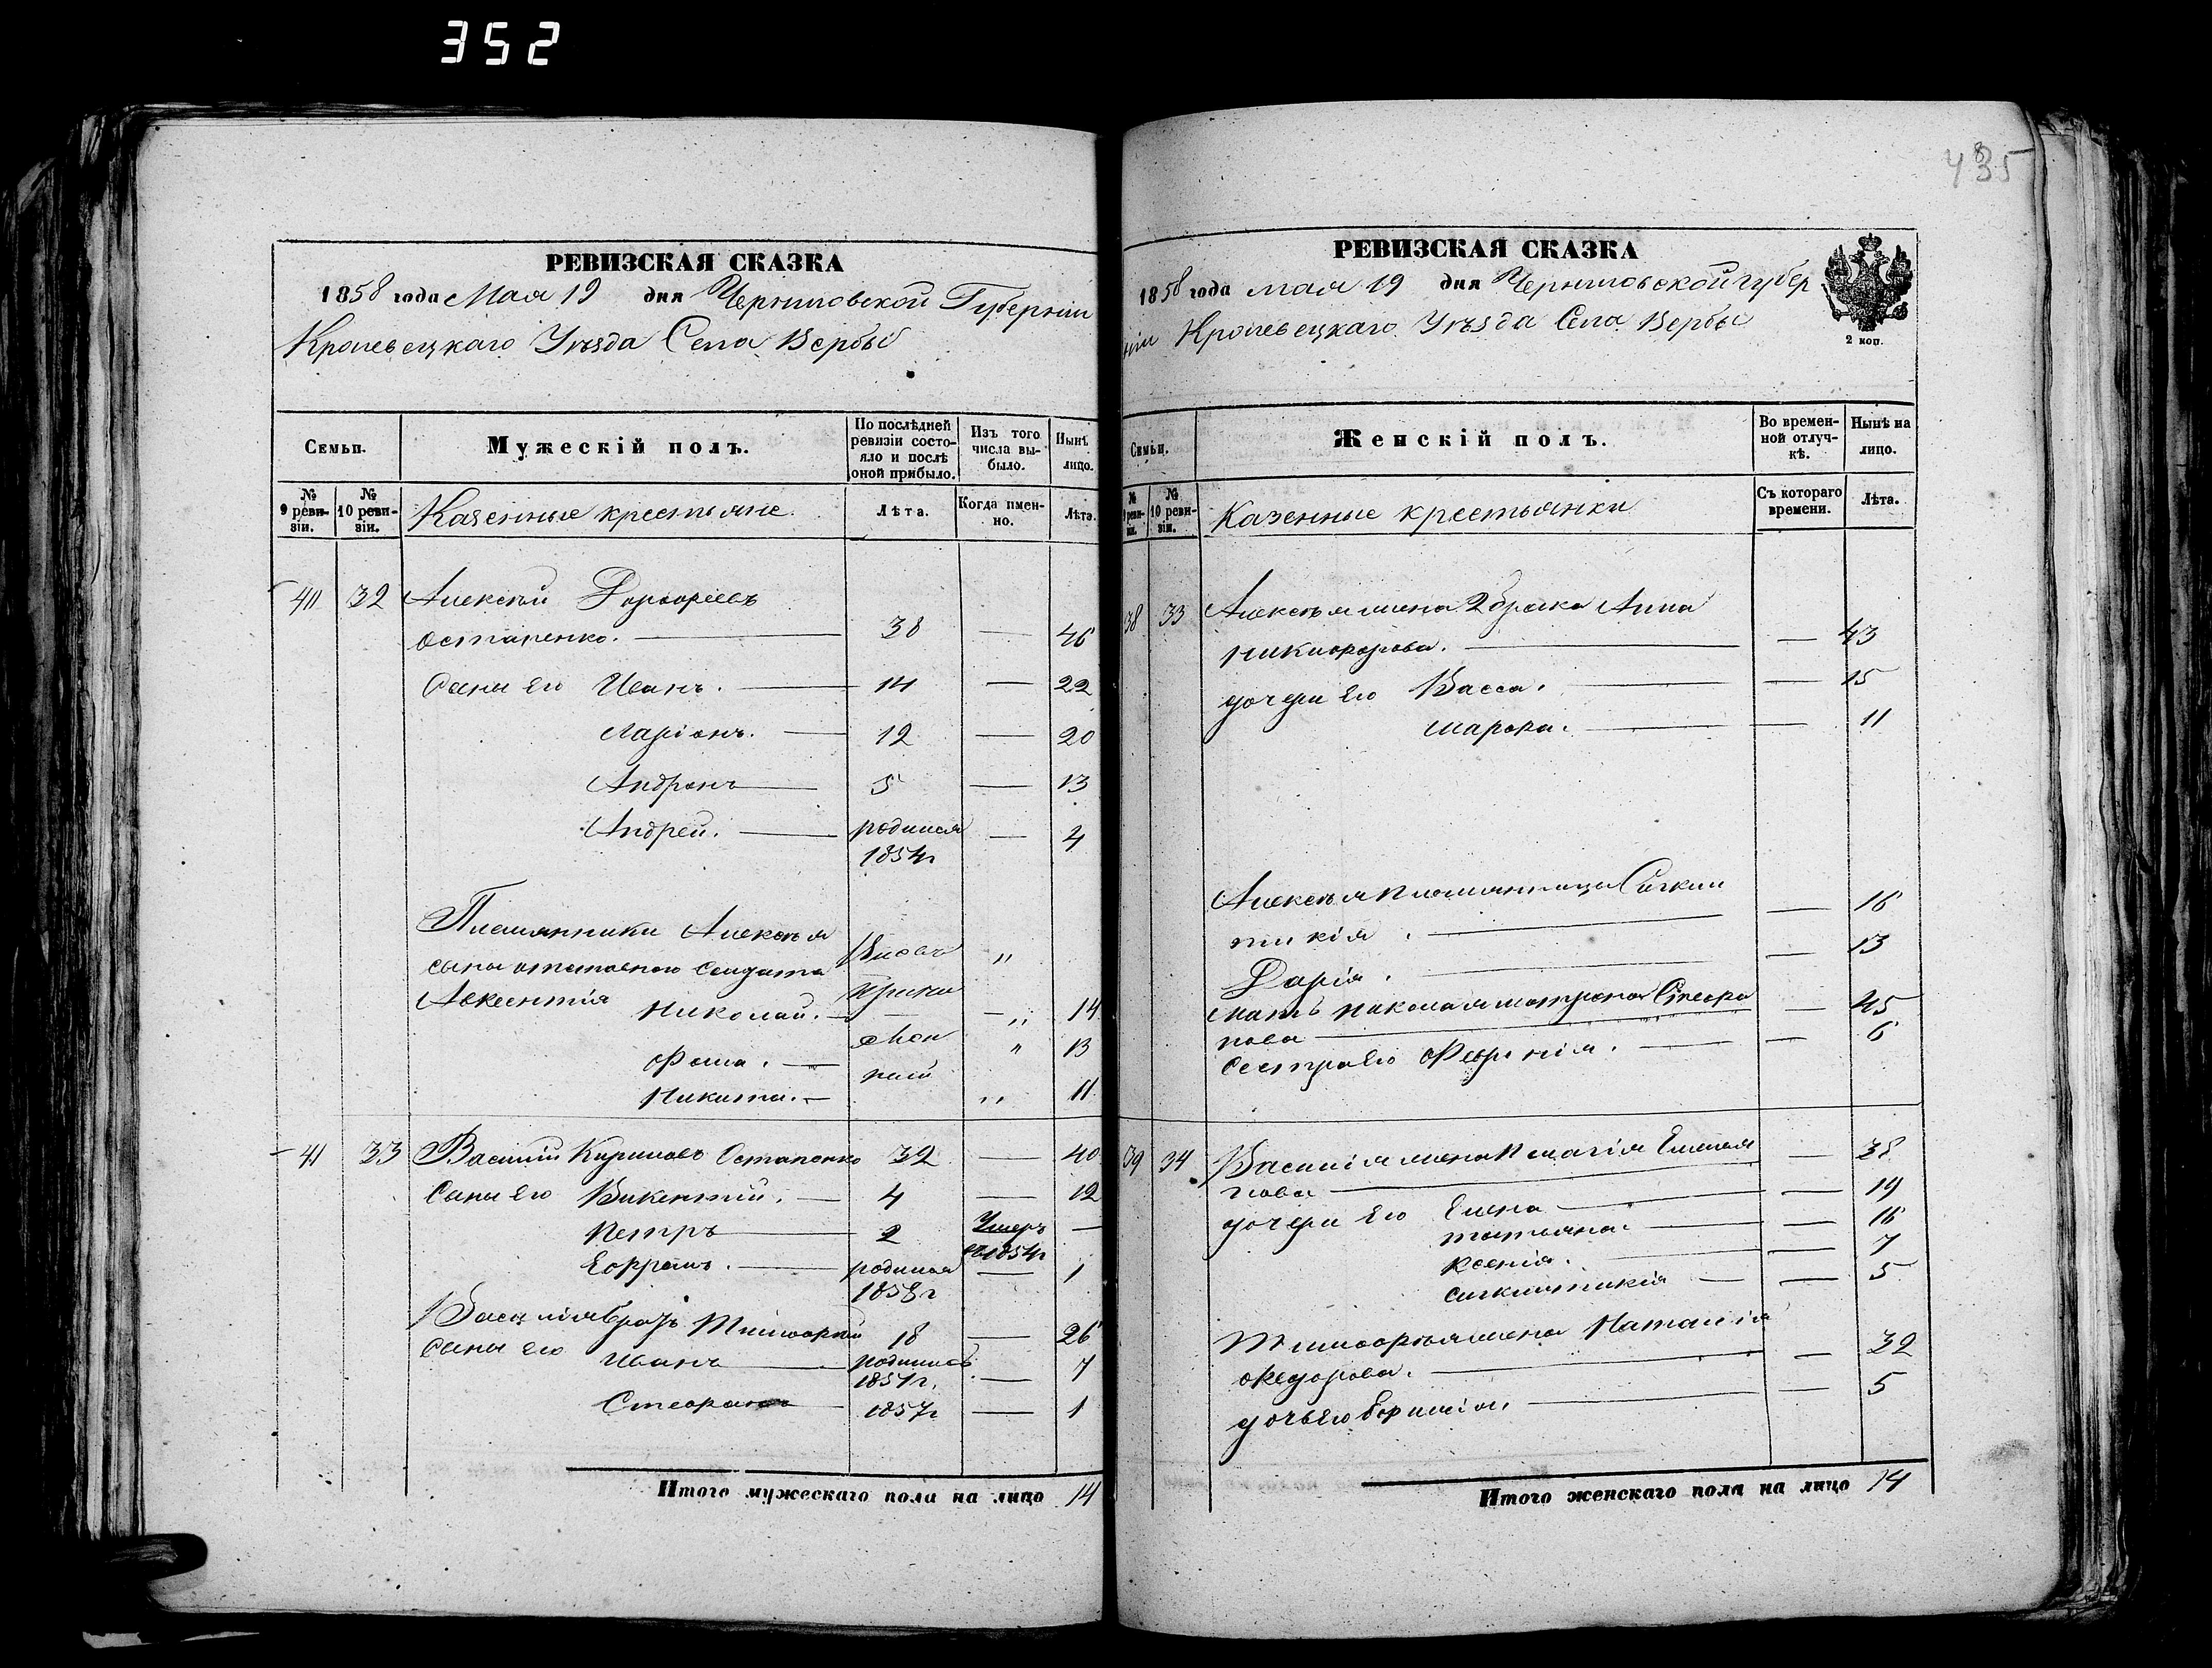 352
435
РЕВИЗСКАЯ СКАЗКА
1858 года Мая 19 дня Черниговской Губерніи
Кролевецкаго Уѣзда Села Вербы
Семьи.
Мужескій полъ.
По послѣдней ревизіи состояло и послѣ оной прибыло.
Изъ того числа выбыло.
Нынѣ лицо.
№ 9 ревизіи.
№ 10 ревизіи.
Казенные крестьяне.
Лѣта.
Когда именно.
Лѣта.
40 32 Алексѣй
Остапенко. 38 — 46
Сыны его Иванъ. 14 — 22
Ларіонъ. 12 — 20
Андронъ 5 — 13
Андрей. родился — 4
1854г
Племянники Алексѣя
сыны отставного Солдата Вновь „
Авксентія Николай. — „ 14
Фома. „ 13
Никита. „ 11
41 33 Василій Кириловъ Остапенко 32 — 40
Сыны его Викентій. 4 — 12
Петръ 2 Умеръ —
въ 1854г
Ефремъ. родился — 1
1858г
Василія братъ Тимофей 18 — 26
Сыны его Иванъ родились — 7
1851г.
Стефанъ 1857г — 1
Итого мужескаго пола на лицо 14
РЕВИЗСКАЯ СКАЗКА
1858 года мая 19 дня Черниговской губер
ніи Кролевецкаго Уѣзда Села Вербы
2 коп.
Семьи.
Женскій полъ.
Во временной отлучкѣ.
Нынѣ на лицо.
№ 9 ревизіи.
№ 10 ревизіи.
Казенные крестьянки
Съ котораго времени.
Лѣта.
38 33 Алексѣя жена 2 брака Анна
Никифорова. — 43
дочери его Васса. — 15
Марфа. — 11
Алексѣя племянницы Синкли
тикія. — 16
Дарія. — 13
Мать Николая Матрона Стефа
нова — 45
Сестра его Февронія. — 6
39 34 Василія жена Пелагія Емелья
нова — 38
дочери его Елена — 19
Татьяна. — 16
Ксенія. — 7
Синклитикія — 5
Тимофея жена Наталія
Федорова. — 32
дочь его — 5
Итого женскаго пола на лицо 14